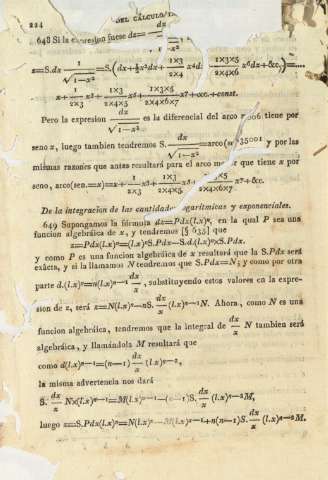 224 DEL CÁLCULO
648 Si la expresion fuese dz= dx/√1-x²
z=S.dx 1/√1-x² =S.(dx+½x²dx+ 1×3/2×4 x⁴d 1×3×5/2×4×6 x⁶dx+&c.)=....
x+ 1/2×3 x³+ 1×3/2×4×5 x⁵+ 1×3×5/2×4×6×7 x⁷+&c.+const.
Pero la expresion dx/√1-x² es la diferencial del arco que tiene por
seno x, luego tambien tendremos S. dx/√1-x² =arco( y por las
mismas razones que antes resultará para el arco que tiene x por
seno, arco(sen.=x)=x+ 1/2×3 x³+ 1×3/2×4×5 x⁵+ ×5/2×4×6×7 x⁷+&c.
De la integracion de las cantidades logarítmicas y exponenciales.
649 Supongamos la fórmula dz=Pdx(l.x)ⁿ, en la qual P sea una
funcion algebráica de x, y tendremos [§ 635] que
z=Pdx(l.x)ⁿ=(l.x)ⁿS.Pdx-S.d.(l.x)ⁿ×S.Pdx.
y como P es una funcion algebráica de x resultará que la S.Pdx será
exâcta, y si la llamamos N tendremos que S.Pdx=N; y como por otra
parte d.(l.x)ⁿ=n(l.x)ⁿ⁻¹ dx/x, substituyendo estos valores en la expre-
sion de z, será z=N(l.x)ⁿ-nS. dx/x (l.x)ⁿ⁻¹N. Ahora, como N es una
funcion algebráica, tendremos que la integral de dx/x N tambien será
algebráica, y llamándola M resultará que
como d(l.x)ⁿ⁻¹=(n-1) dx/x (l.x)ⁿ⁻²,
la misma advertencia nos dará
S. dx/x N×(l.x)ⁿ⁻¹=M(l.x)ⁿ⁻¹-(n-1)S. dx/x (l.x)ⁿ⁻²M,
luego z=S.Pdx(l.x)ⁿ=N(l.x)ⁿ-nM(l.x)ⁿ⁻¹+n(n-1)S. dx/x (l.x)ⁿ⁻²M.